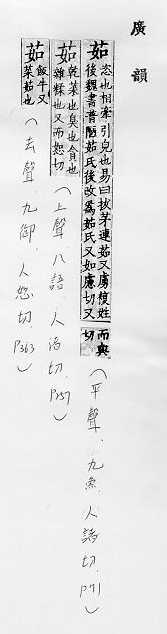 廣韻
茹 恣也相牽引皃也易曰拔茅連茹又虜複姓
後魏書普陋茹氏後改爲茹氏又如慮切又
而與切
（平聲、九魚、人諸切、P71）
茹 乾菜也臭也貪也
雜糅也又而恕切
（上聲、八語、人渚切、P257）
茹 飯牛又
菜茹也
（去聲、九御、人恕切、P363）